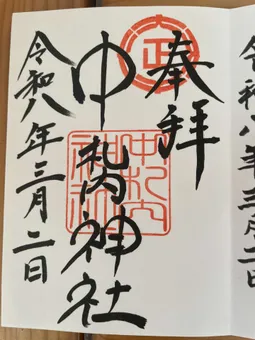 令和八年三月二日
奉拝
大正
中札内神社
令和八年三月二日